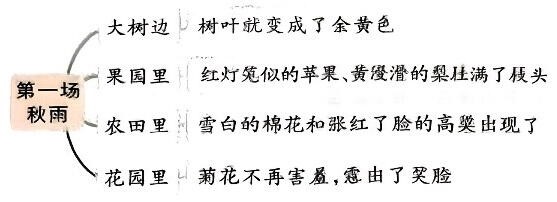 第一场
秋雨
大树边 树叶就变成了金黄色
果园里 红灯笼似的苹果、黄澄澄的梨挂满了枝头
农田里 雪白的棉花和张红了脸的高粱出现了
花园里 菊花不再害羞,露出了笑脸